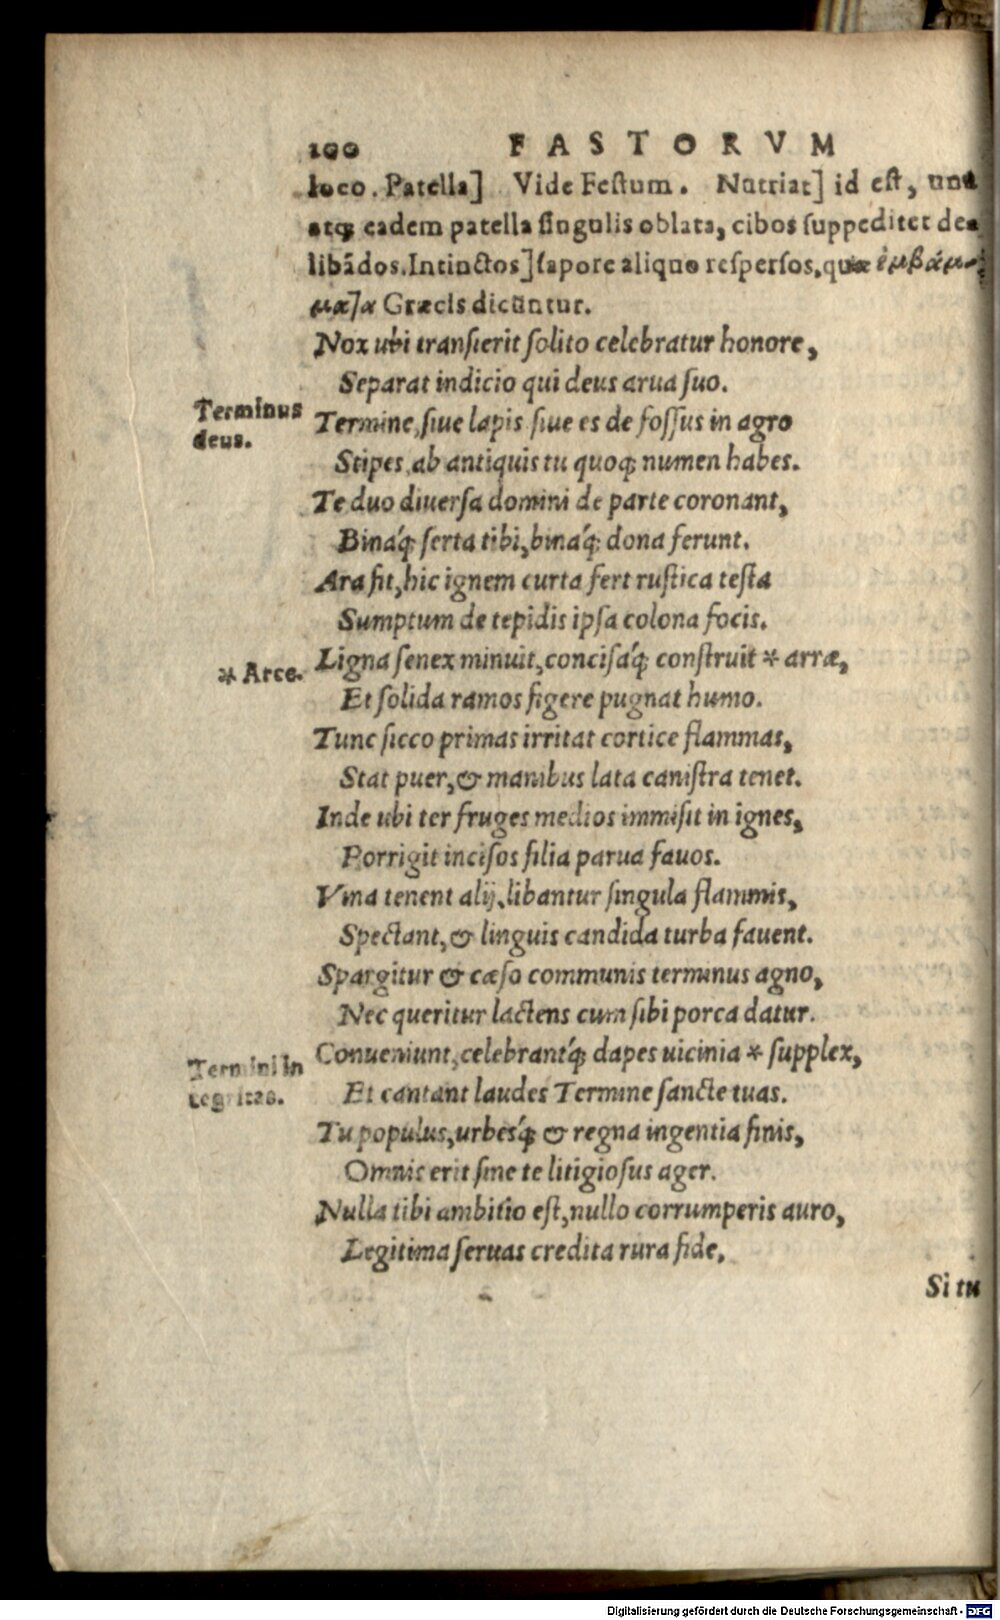 100 FASTORVM
loco. Patella] Vide Festum. Nutriat] id est, una
atq; eadem patella singulis oblata, cibos suppeditet de
libādos. Intinctos] sapore aliquo respersos, quæ ἐμβάμ-
ματα Græcis dicūntur.
Nox ubi transierit solito celebratur honore,
Separat indicio qui deus arua suo.
Terminus
deus.
Termine, siue lapis siue es de fossus in agro
Stipes ab antiquis tu quoq; numen habes.
Te duo diuersa domini de parte coronant,
Bináq; serta tibi, bináq; dona ferunt.
Ara fit, hic ignem curta fert rustica testa
Sumptum de tepidis ipsa colona focis.
* Arce.
Ligna senex minuit, concisáq; construit * arræ,
Et solida ramos figere pugnat humo.
Tunc sicco primas irritat cortice flammas,
Stat puer, & manibus lata canistra tenet.
Inde ubi ter fruges medios immisit in ignes,
Porrigit incisos filia parua fauos.
Vina tenent alij, libantur singula flammis,
Spectant, & linguis candida turba fauent.
Spargitur & cæso communis terminus agno,
Nec queritur lactens cum sibi porca datur.
Termini in
tegritas.
Conueniunt, celebrantq́; dapes uicinia * supplex,
Et cantant laudes Termine sancte tuas.
Tu populus, urbesq́; & regna ingentia finis,
Omnis erit sine te litigiosus ager.
Nulla tibi ambitio est, nullo corrumperis auro,
Legitima seruas credita rura fide,
Si tu
Digitalisierung gefördert durch die Deutsche Forschungsgemeinschaft - DFG